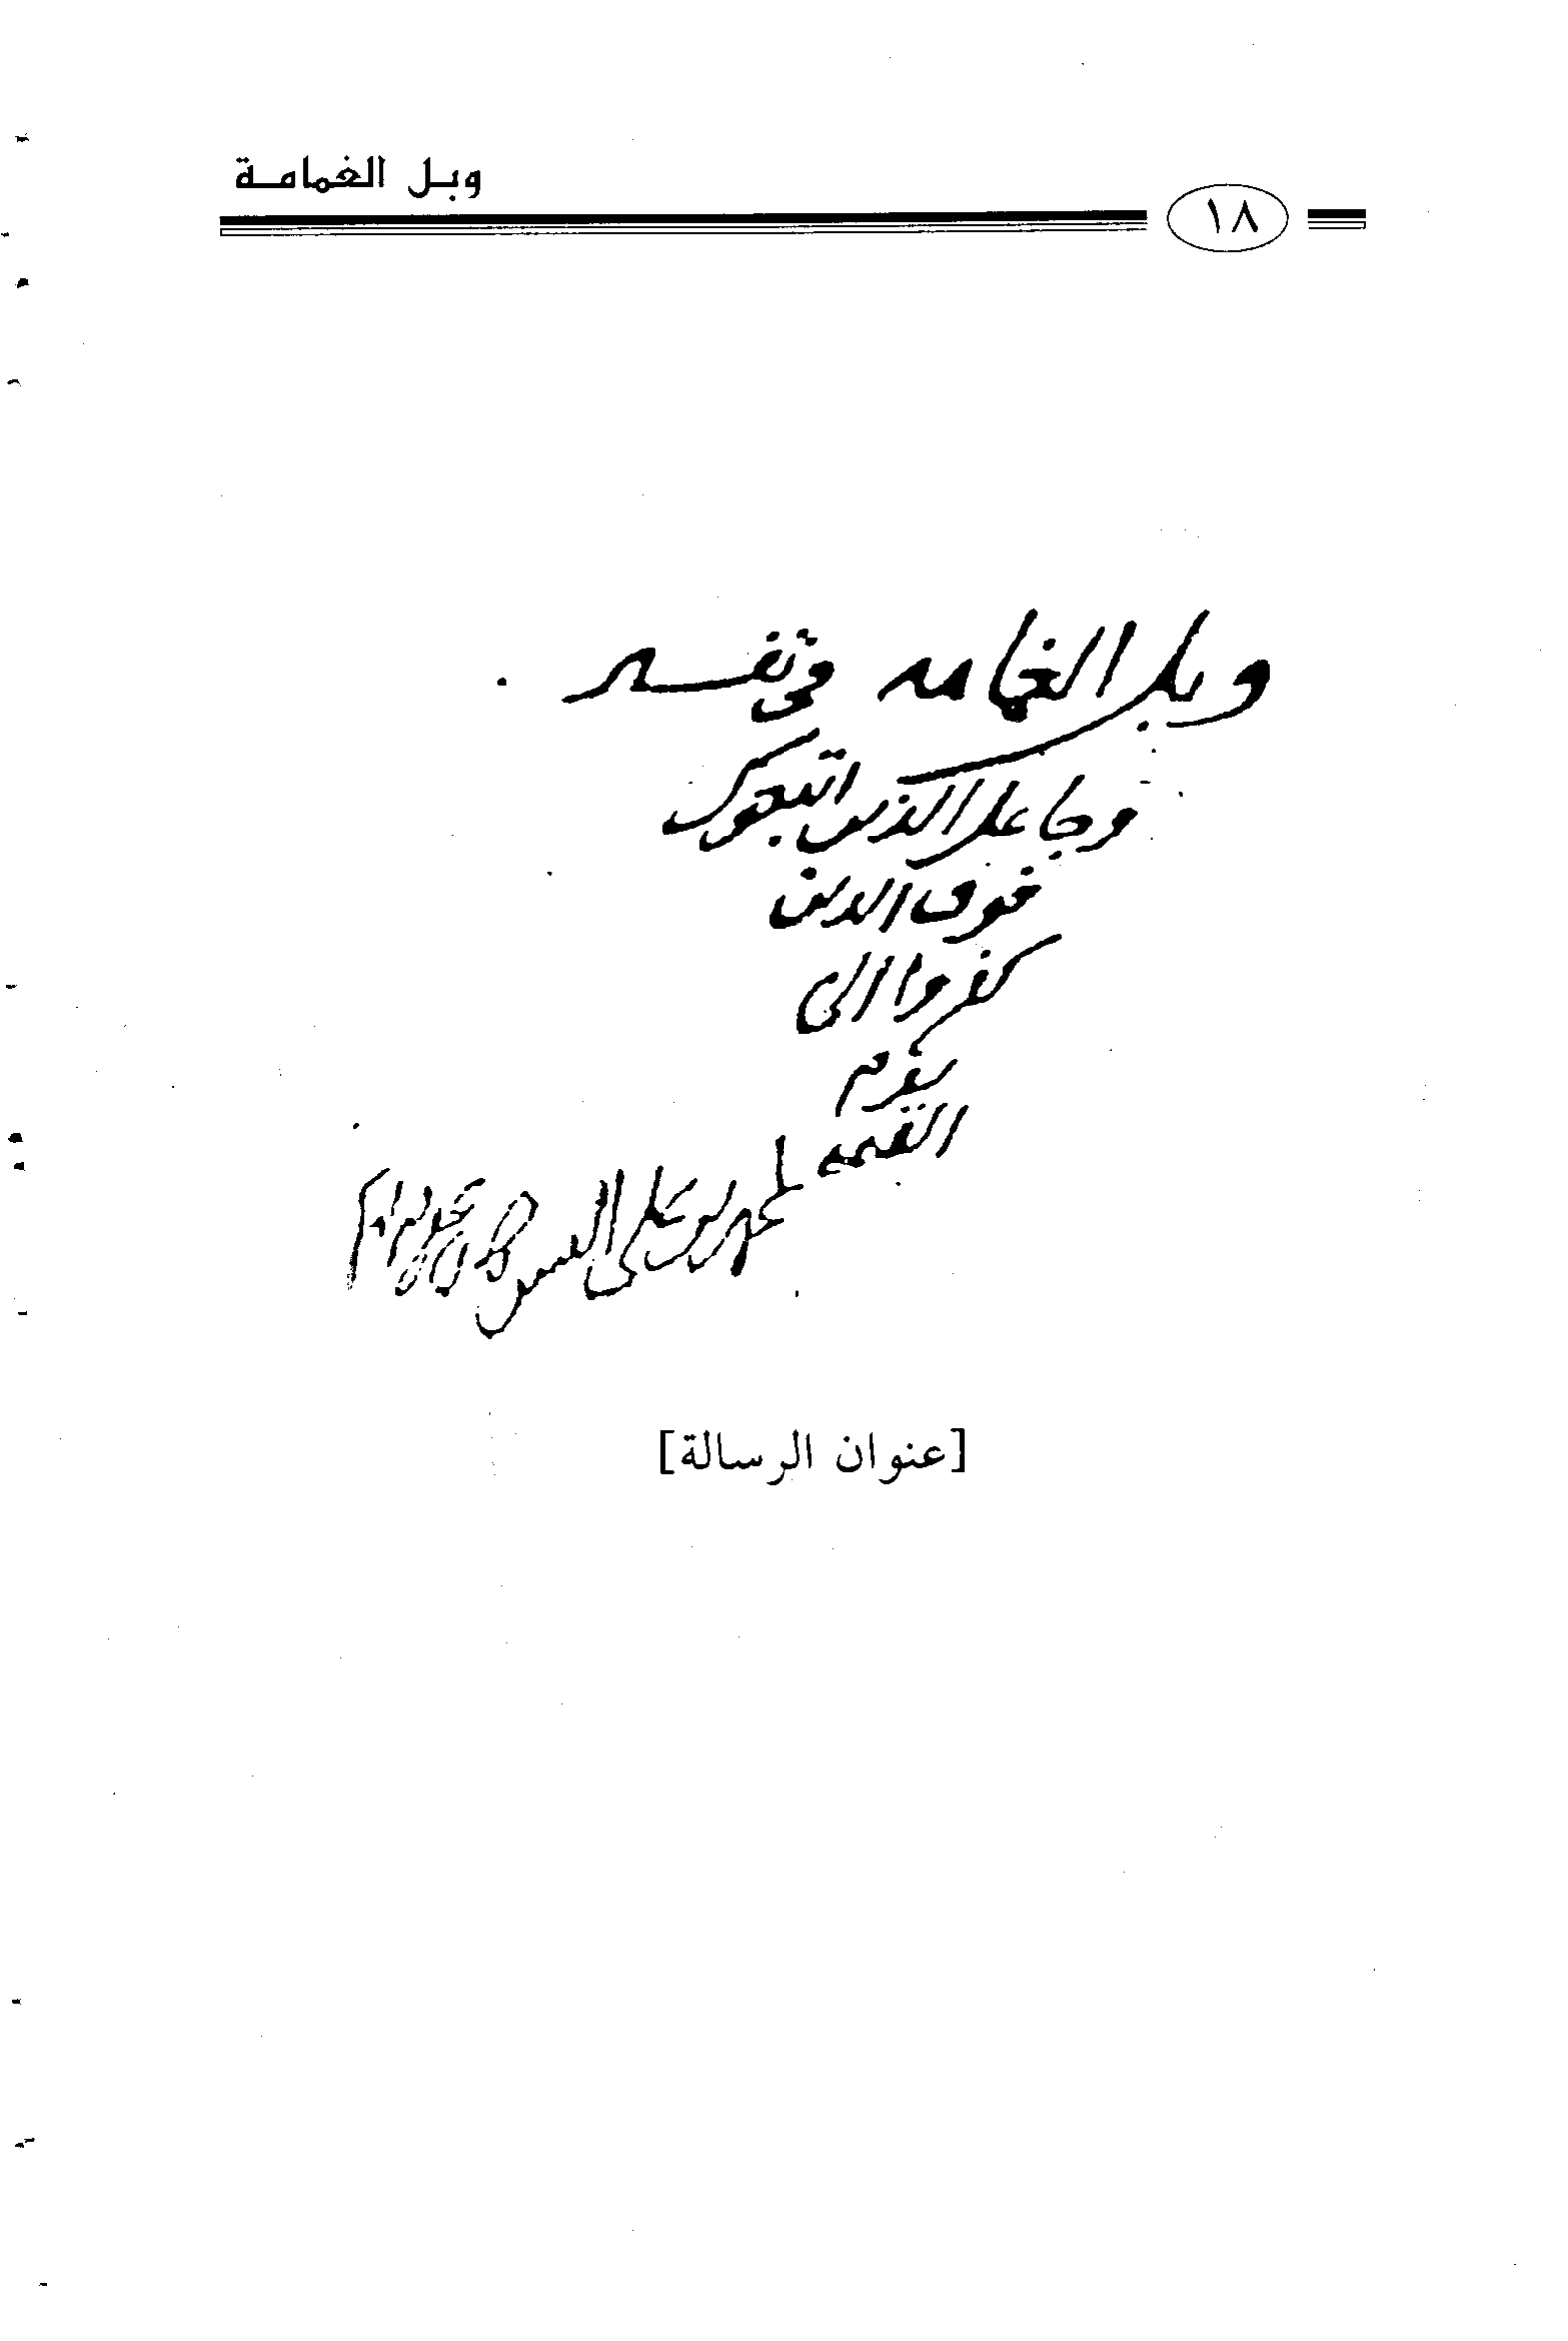 وبل الغمامة
١٨
وبل الغمامه في تفسير
وجاعل الذين اتبعوك
فوق الذين
كفروا الى
يوم
القيمه
لمحمد بن علي الشوكاني
[عنوان الرسالة]